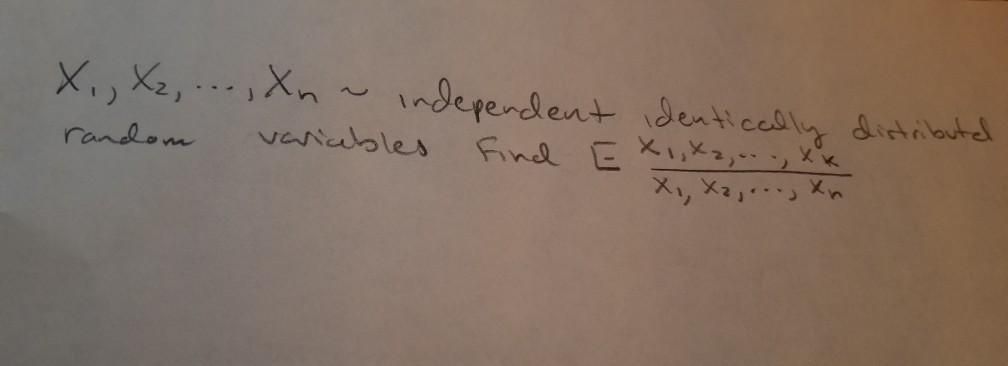 X₁, X₂, ..., Xn ~ independent identically distributed
random variables Find E X₁, X₂, ..., Xk
X₁, X₂, ..., Xn